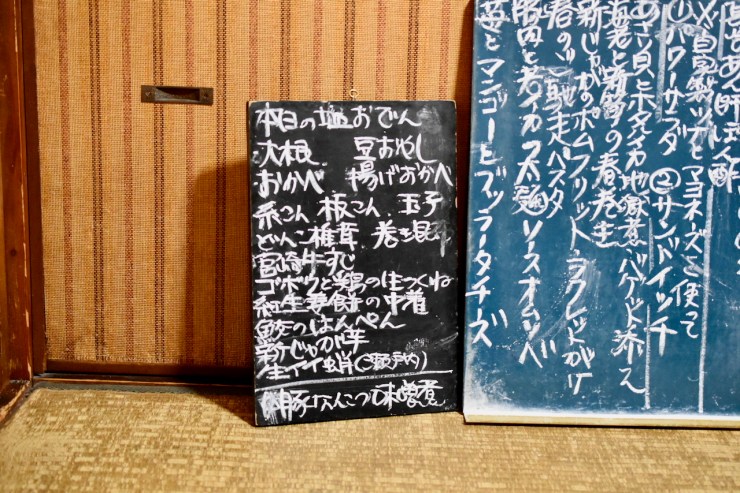 本日の地おでん
大根 豆おやし
おかべ 揚げおかべ
糸こん 板こん 玉子
どんこ椎茸 巻き昆布
宮崎牛すじ
ゴボウと鶏の生つくね
紅生姜餅の巾着
のはんぺん
新じゃが芋
生タイラ(瀬戸内)
豚なんこつ味噌煮
自家製ツナとマヨネーズを使って
①パワーサラダ ②サンドイッチ
あさり貝とホタルイカ地獄煮 バゲット添え
海老と新筍の春巻き
新じゃがのポムフリット ラクレットがけ
春のご馳走パスタ
豚肉と若イカ 太麺ソースオムソバ
苺とマンゴーとブッラータチーズ